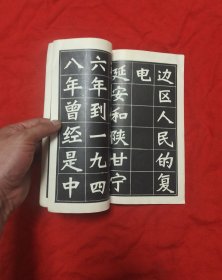 边区人民的复
电
延安和陕甘宁
六年到一九四
八年曾经是中